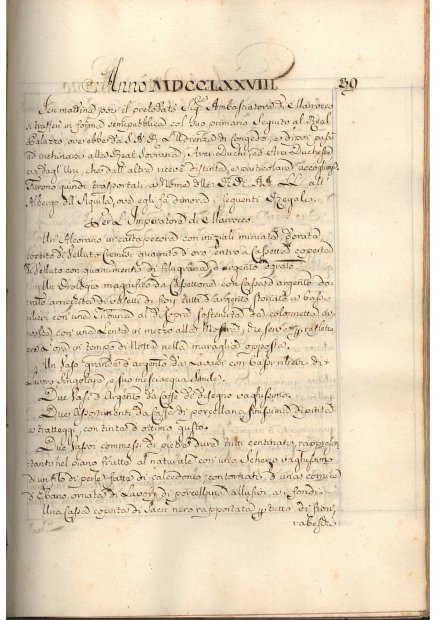 Anno MDCCLXXVIII 89
Jer mattina poi il prelodato Sig. Ambasciatore di Marocco
si trasferì in forma semipubblica col suo primario Seguito al Real
Palazzo, ove ebbe da S.A.R. l'Udienza di congedo, e di poi passò
ad inchinarsi alla Real Sovrana, Arciduchi, ed Arciduchesse
e dagl'Uni, che dall'altra ricevè distinte, e particolari accoglienze.
Furono quindi trasportati, a Nome delle LL. AA. RR. all'
Albergo dell'Aquila, ove egli fa dimora i seguenti Regali.
Per l'Imperatore di Marocco.
Un' Alcorano in carta pecora con iniziali miniate, e dorate,
coperto di Velluto Cremisi guarnito d'oro entro a Cassetta coperta
di Velluto con guarnimenti di filagrana, d'argento dorato.
Un Orologio magnifico da Cassettone con Cassa d'argento do-
rato arricchita di Vasetti di fiori tutti d'argento storiato a bassi
rilievi con una Tribuna al di sopra sostenuta da colonnette a
volta, con una Lente in mezzo alla Mostra, che serve per riflettere
l'Ora in tempo di Notte nella muraglia opposta.
Un Vaso grande d'argento da Lavarsi con bassirilievi di
Lavoro Singolare, e suo mesciacqua Simile.
Due Vasi d'Argento da Caffè di disegno vaghissimo.
Due Assortimenti da Caffè di porcellana finissima dipinta
a tratteggi, con tinta d'ottimo gusto.
Due Vassoi commessi di pietre dure tutti centinati, rappresen
tanti nel piano frutte al naturale con uno Scherzo vaghissimo
di un filo di perle fatto di calcedonio, contornati d'una cornice
d'Ebano ornata di Lavori di porcellana allusivi a i fondi.
Una Cassa coperta di Saen nero rapportata p. tutto di fiori,
rabeschi